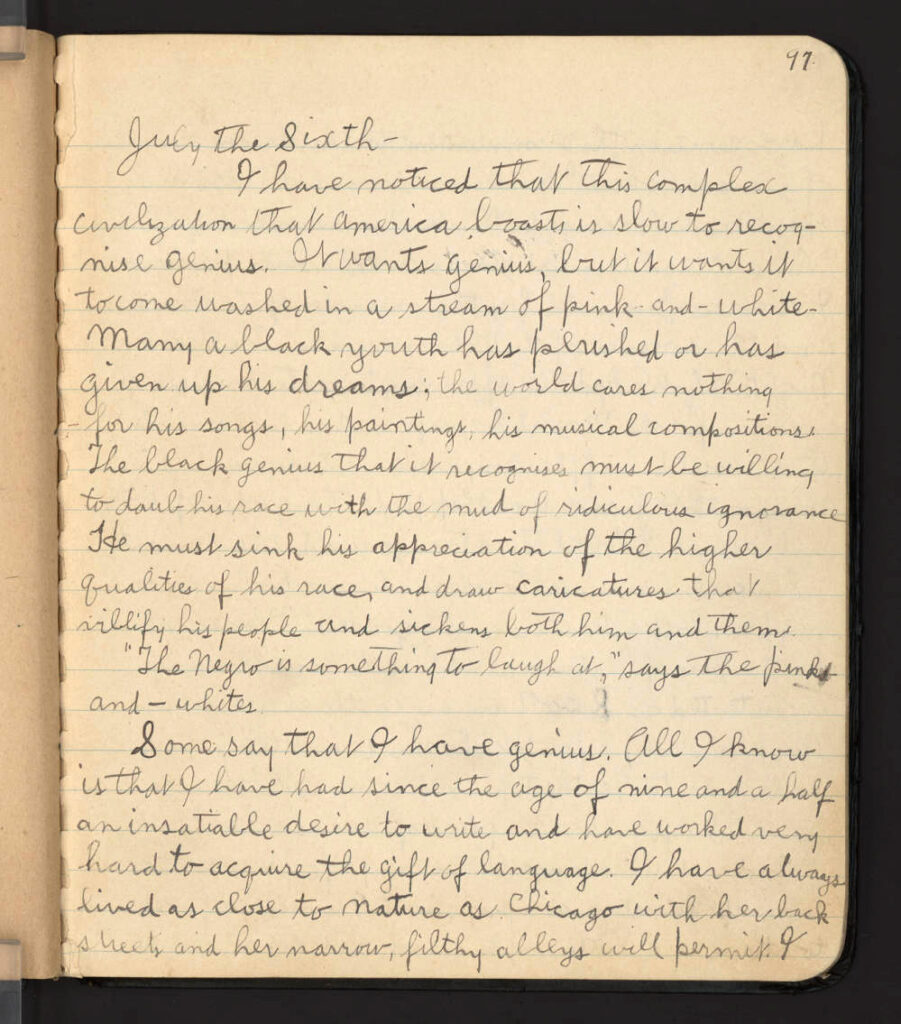 97.
July the Sixth-
I have noticed that this complex
civilization that america boasts is slow to recog-
nise genius. It wants genius, but it wants it
to come washed in a stream of pink-and-white-
Many a black youth has perished or has
given up his dreams; the world cares nothing
for his songs, his paintings, his musical compositions.
The black genius that it recognises must be willing
to daub his race with the mud of ridiculous ignorance
He must sink his appreciation of the higher
qualities of his race, and draw caricatures that
villify his people and sickens both him and them.
"The Negro is something to laugh at," says the pink
and-whites
Some say that I have genius. All I know
is that I have had since the age of nine and a half
an insatiable desire to write and have worked very
hard to acquire the gift of language. I have always
lived as close to nature as Chicago with her back
streets and her narrow, filthy alleys will permit. I